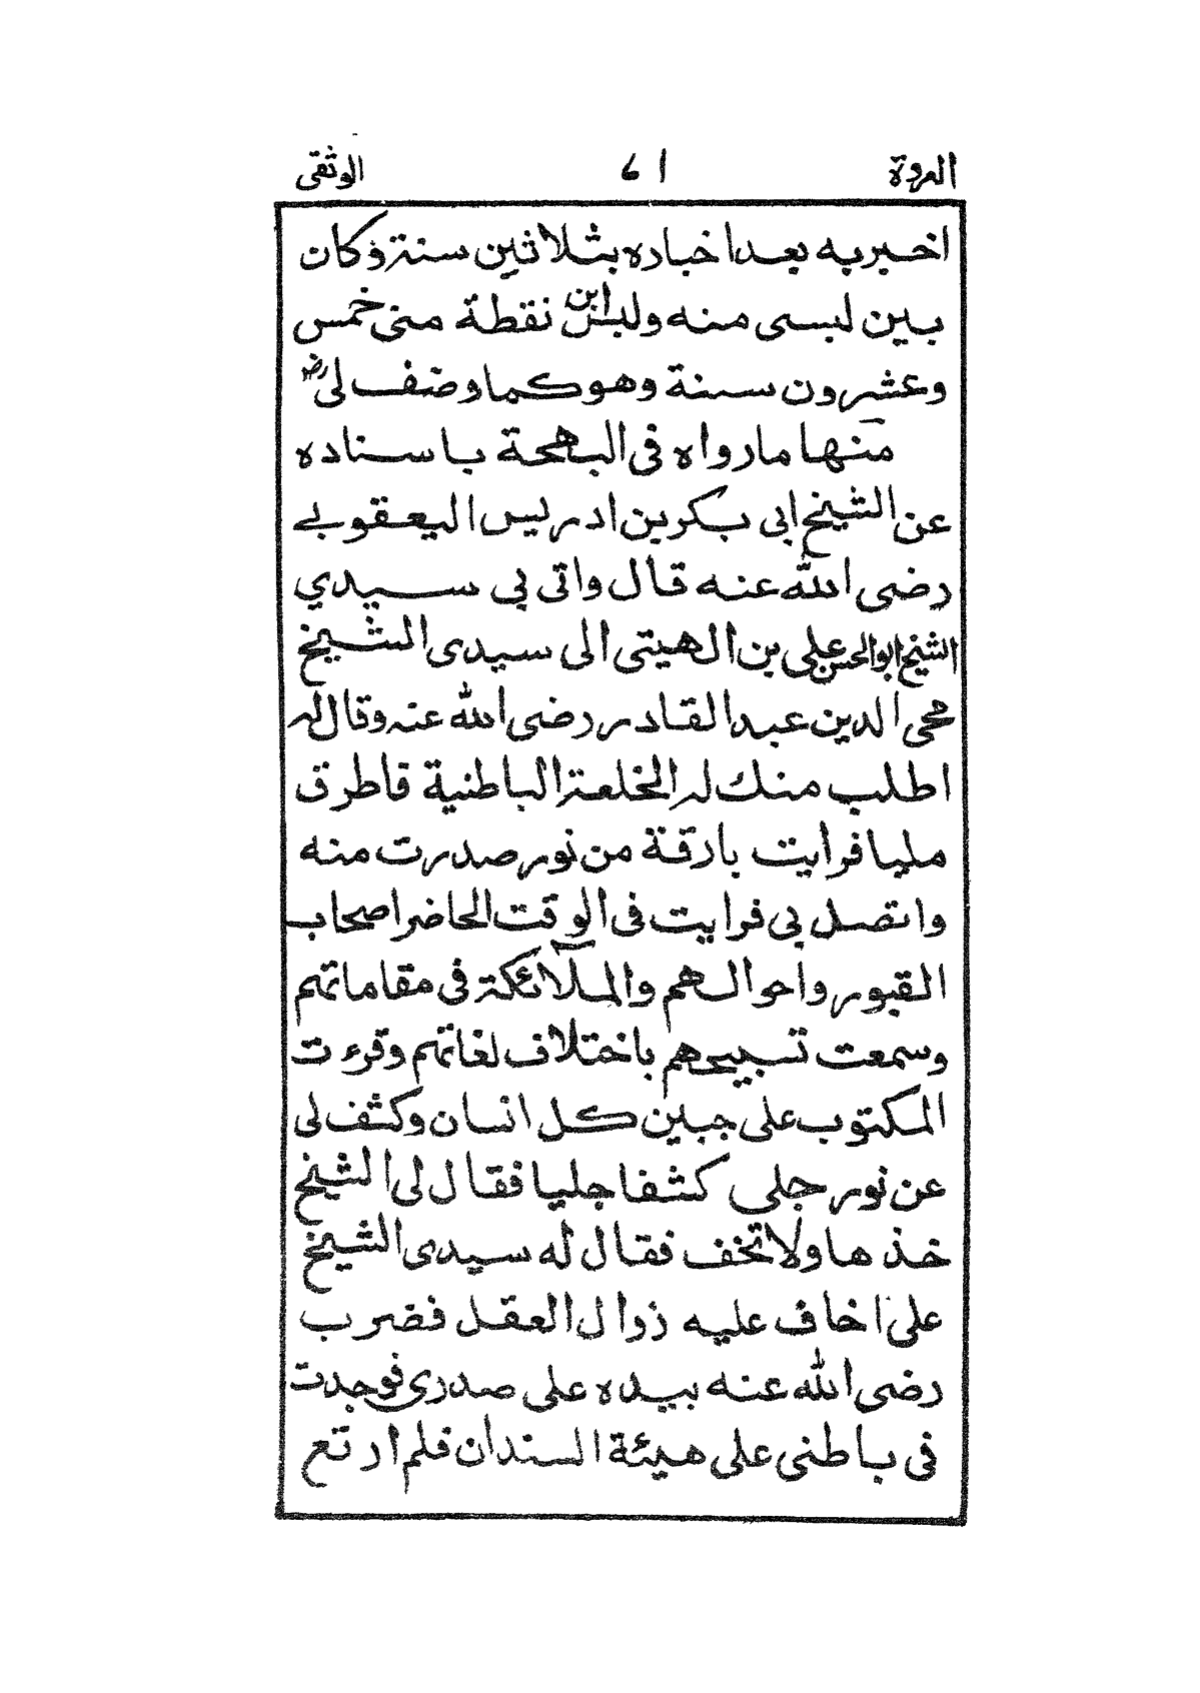 العروة ١٦ الوثقى
اخبربه بعد اخباره بثلاثين سنة وكان
بين لبسى منه ولبس ابن نقطة منى خمس
وعشرون سنة وهو كما وصف لى رض
منها ما رواه فى البهجة باسناده
عن الشيخ ابى بكر بن ادريس اليعقوبے
رضى الله عنه قال واتى بى سيدي
الشيخ ابو الحسن على بن الهيتى الى سيدى الشيخ
محى الدين عبد القادر رضى الله عنه وقال له
اطلب منك له الخلعة الباطنية فاطرق
مليا فرايت بارقة من نور صدرت منه
واتصل بى فرايت فى الوقت الحاضر اصحاب
القبور واحوالهم والملآئكة فى مقاماتهم
وسمعت تسبيحهم باختلاف لغاتهم وقرءت
المكتوب على جبين كل انسان وكشف لى
عن نور جلى كشفا جليا فقال لى الشيخ
خذها ولا تخف فقال له سيدى الشيخ
على اخاف عليه زوال العقل فضرب
رضى الله عنه بيده على صدرى فوجدت
فى باطنى على هيئة السندان فلم ارتع